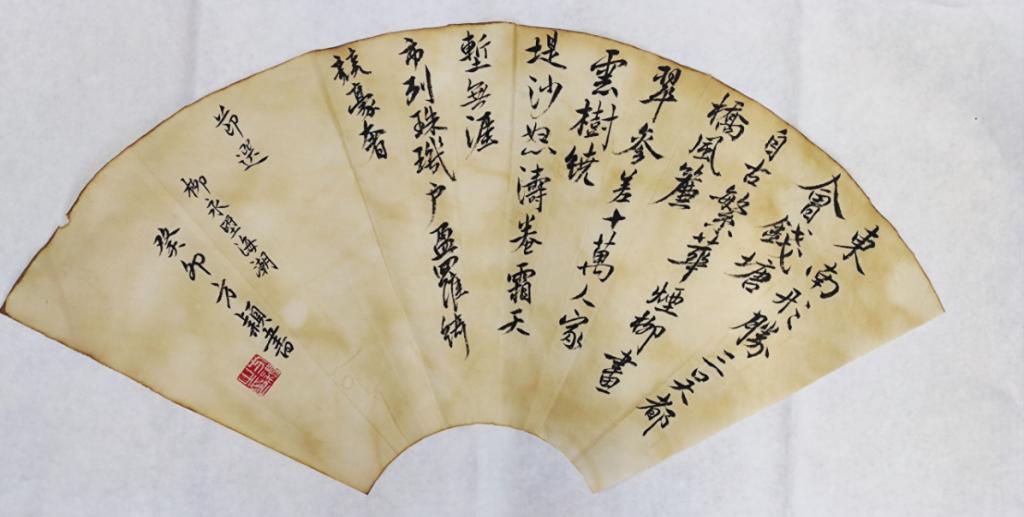 東南形勝三吳都
會錢塘
自古繁華煙柳畫
橋風簾
翠參差十萬人家
雲樹繞
堤沙怒濤卷霜天
塹無涯
市列珠璣戶盈羅綺
競豪奢
節選
柳永望海潮
癸卯方穎書